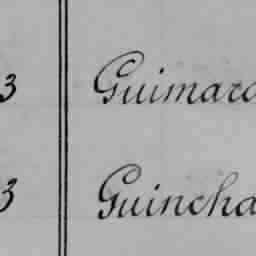 3 Guimard
3 Guincha